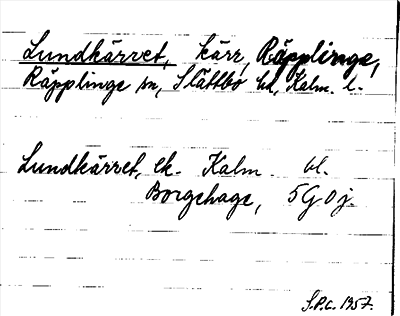 Lundkärret, kärr, Räpplinge,
Räpplinge sn, Slättbo hd, Kalm. l.
Lundkärret, ek. Kalm. bl.
Borgehage, 5G0j.
S.P.c. 1957.